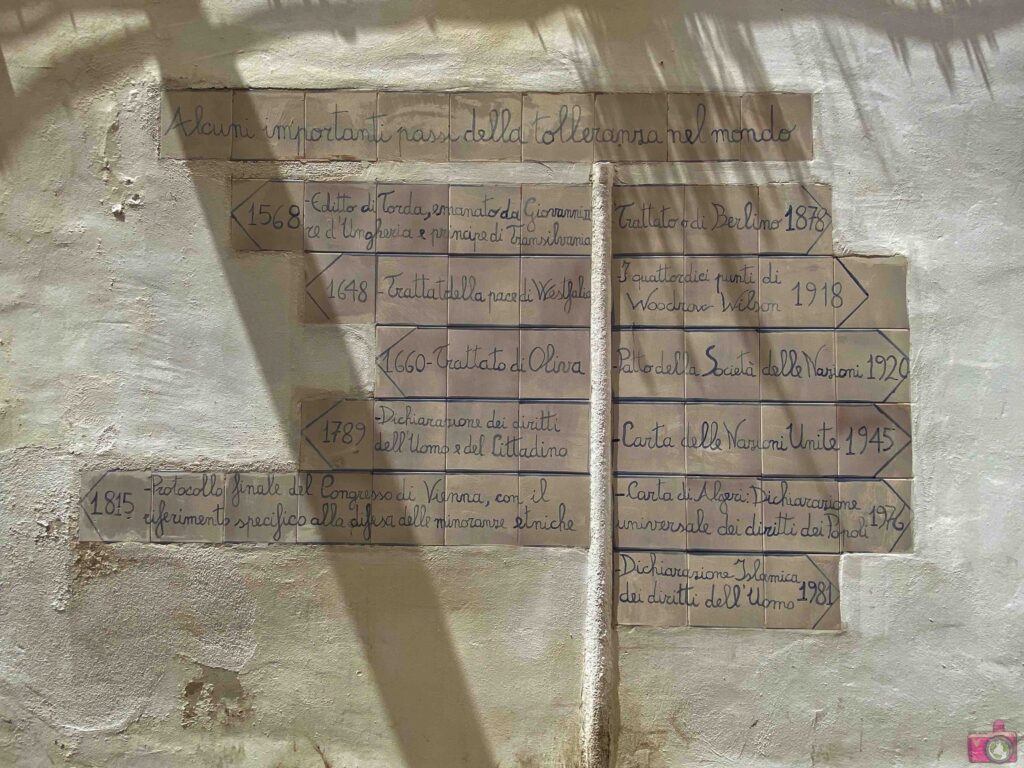 Alcuni importanti passi della tolleranza nel mondo
1568 -Editto di Torda, emanato da Giovanni
re d'Ungheria e principe di Transilvania
1648 -Trattato della pace di Westfalia
1660-Trattato di Oliva
1789 -Dichiarazione dei diritti
dell'Uomo e del Cittadino
1815 -Protocollo finale del Congresso di Vienna, con il
riferimento specifico alla difesa delle minoranze etniche
Trattato di Berlino 1878
I quattordici punti di
Woodrow Wilson 1918
-Patto della Società delle Nazioni 1920
-Carta delle Nazioni Unite 1945
-Carta di Algeri: Dichiarazione
universale dei diritti dei Popoli 1976
-Dichiarazione Islamica
dei diritti dell'Uomo 1981